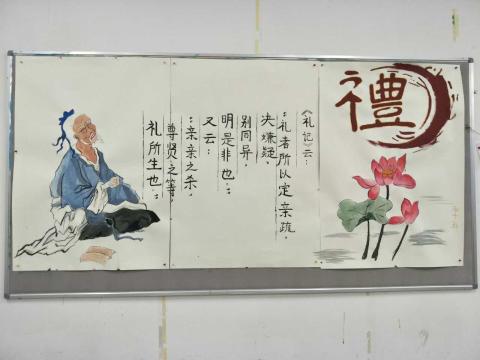 禮
《礼记》云：
“礼者所以定亲疏，
决嫌疑，
别同异，
明是非也”；
又云：
“亲亲之杀，
尊贤之等，
礼所生也”